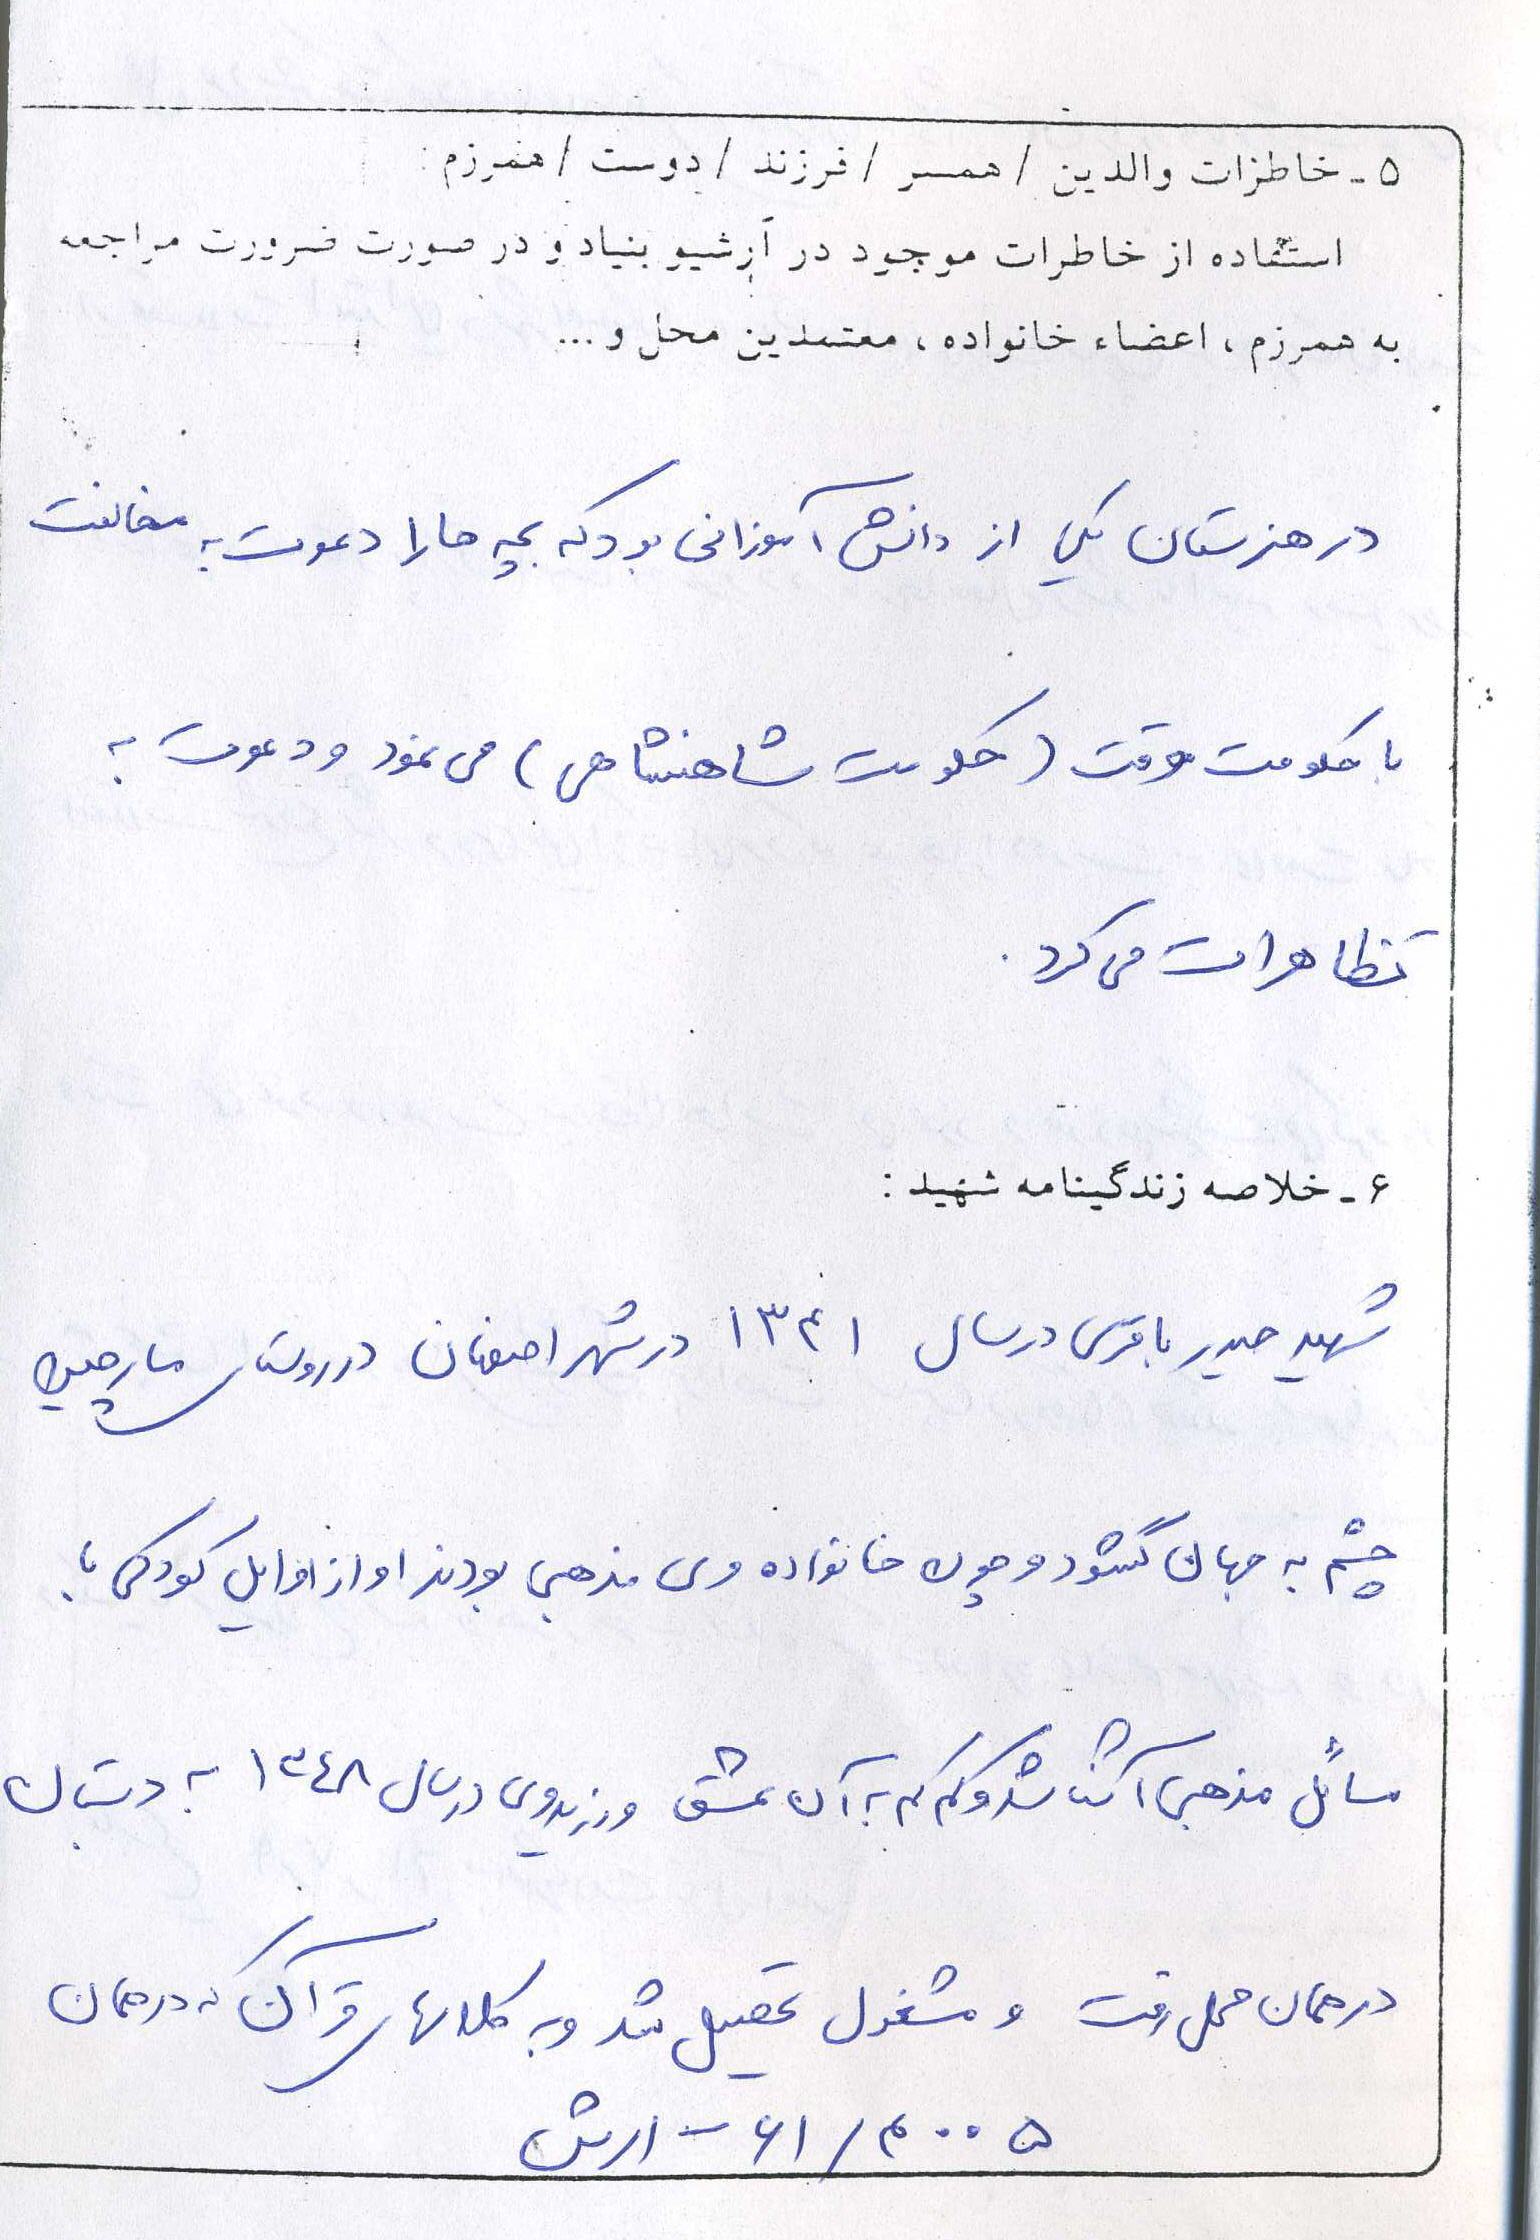 ۵ - خاطرات والدین / همسر / فرزند / دوست / همرزم :
استفاده از خاطرات موجود در آرشیو بنیاد و در صورت ضرورت مراجعه
به همرزم ، اعضاء خانواده ، معتمدین محل و ...
در هنرستان یکی از دانش آموزانی بود که بچه ها را دعوت به مخالفت
با حکومت وقت ( حکومت شاهنشاهی ) می نمود و دعوت به
تظاهرات می کرد .
۶ - خلاصه زندگینامه شهید :
شهید حیدر باقری در سال ۱۳۴۱ در شهر اصفهان در روستای مارچین
چشم به جهان گشود و چون خانواده وی مذهبی بودند او از اوایل کودکی با
مسائل مذهبی آشنا شد و کم کم به آن عشق ورزید وی در سال ۱۳۴۸ به دبستان
در همان محل رفت و مشغول تحصیل شد و به کلاسهای قرآن که در همان
۶۱/۴۰۰۵ - ارتش